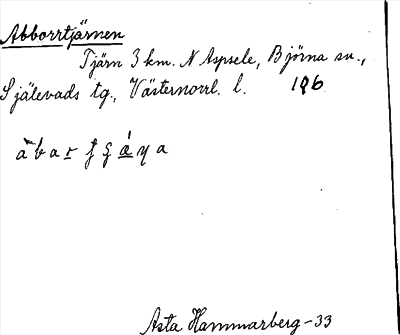 Abborrtjärnen
Tjärn 3 km. N Aspsele, Björna sn.,
Själevads tg., Västernorrl. l. 196
Asta Hammarberg-33